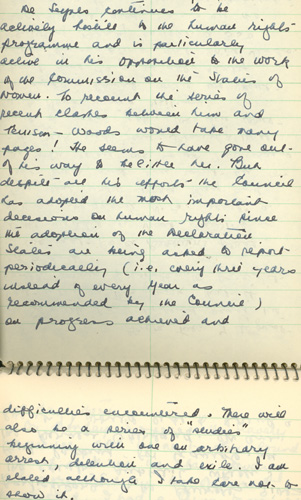 De Seynes continues to be
actively hostile to the human rights
programme and is particularly
active in his opposition to the work
of the Commission on the Status of
Women. To recount the series of
recent clashes between him and
Tenison-Woods would take many
pages! He seems to have gone out
of his way to belittle her. But
despite all his efforts the Council
has adopted the most important
decisions on human rights since
the adoption of the Declaration
States are being asked to report
periodically (i.e. every three years
instead of every year as
recommended by the Council)
on progress achieved and
difficulties encountered. There will
also be a series of "studies"
beginning with one on arbitrary
arrest, detention and exile. I am
elated although I take care not to
show it.